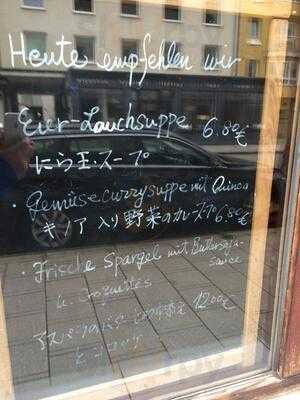 Heute empfehlen wir
Eier-Lauchsuppe 6.80€
にら玉・スープ
・Gemüsecurrysuppe mit Quinoa
キノア入り野菜のカレースープ 6.80€
・Frische Spargel mit Buttersoja-
sauce
u.
アスパラのバター 1200€